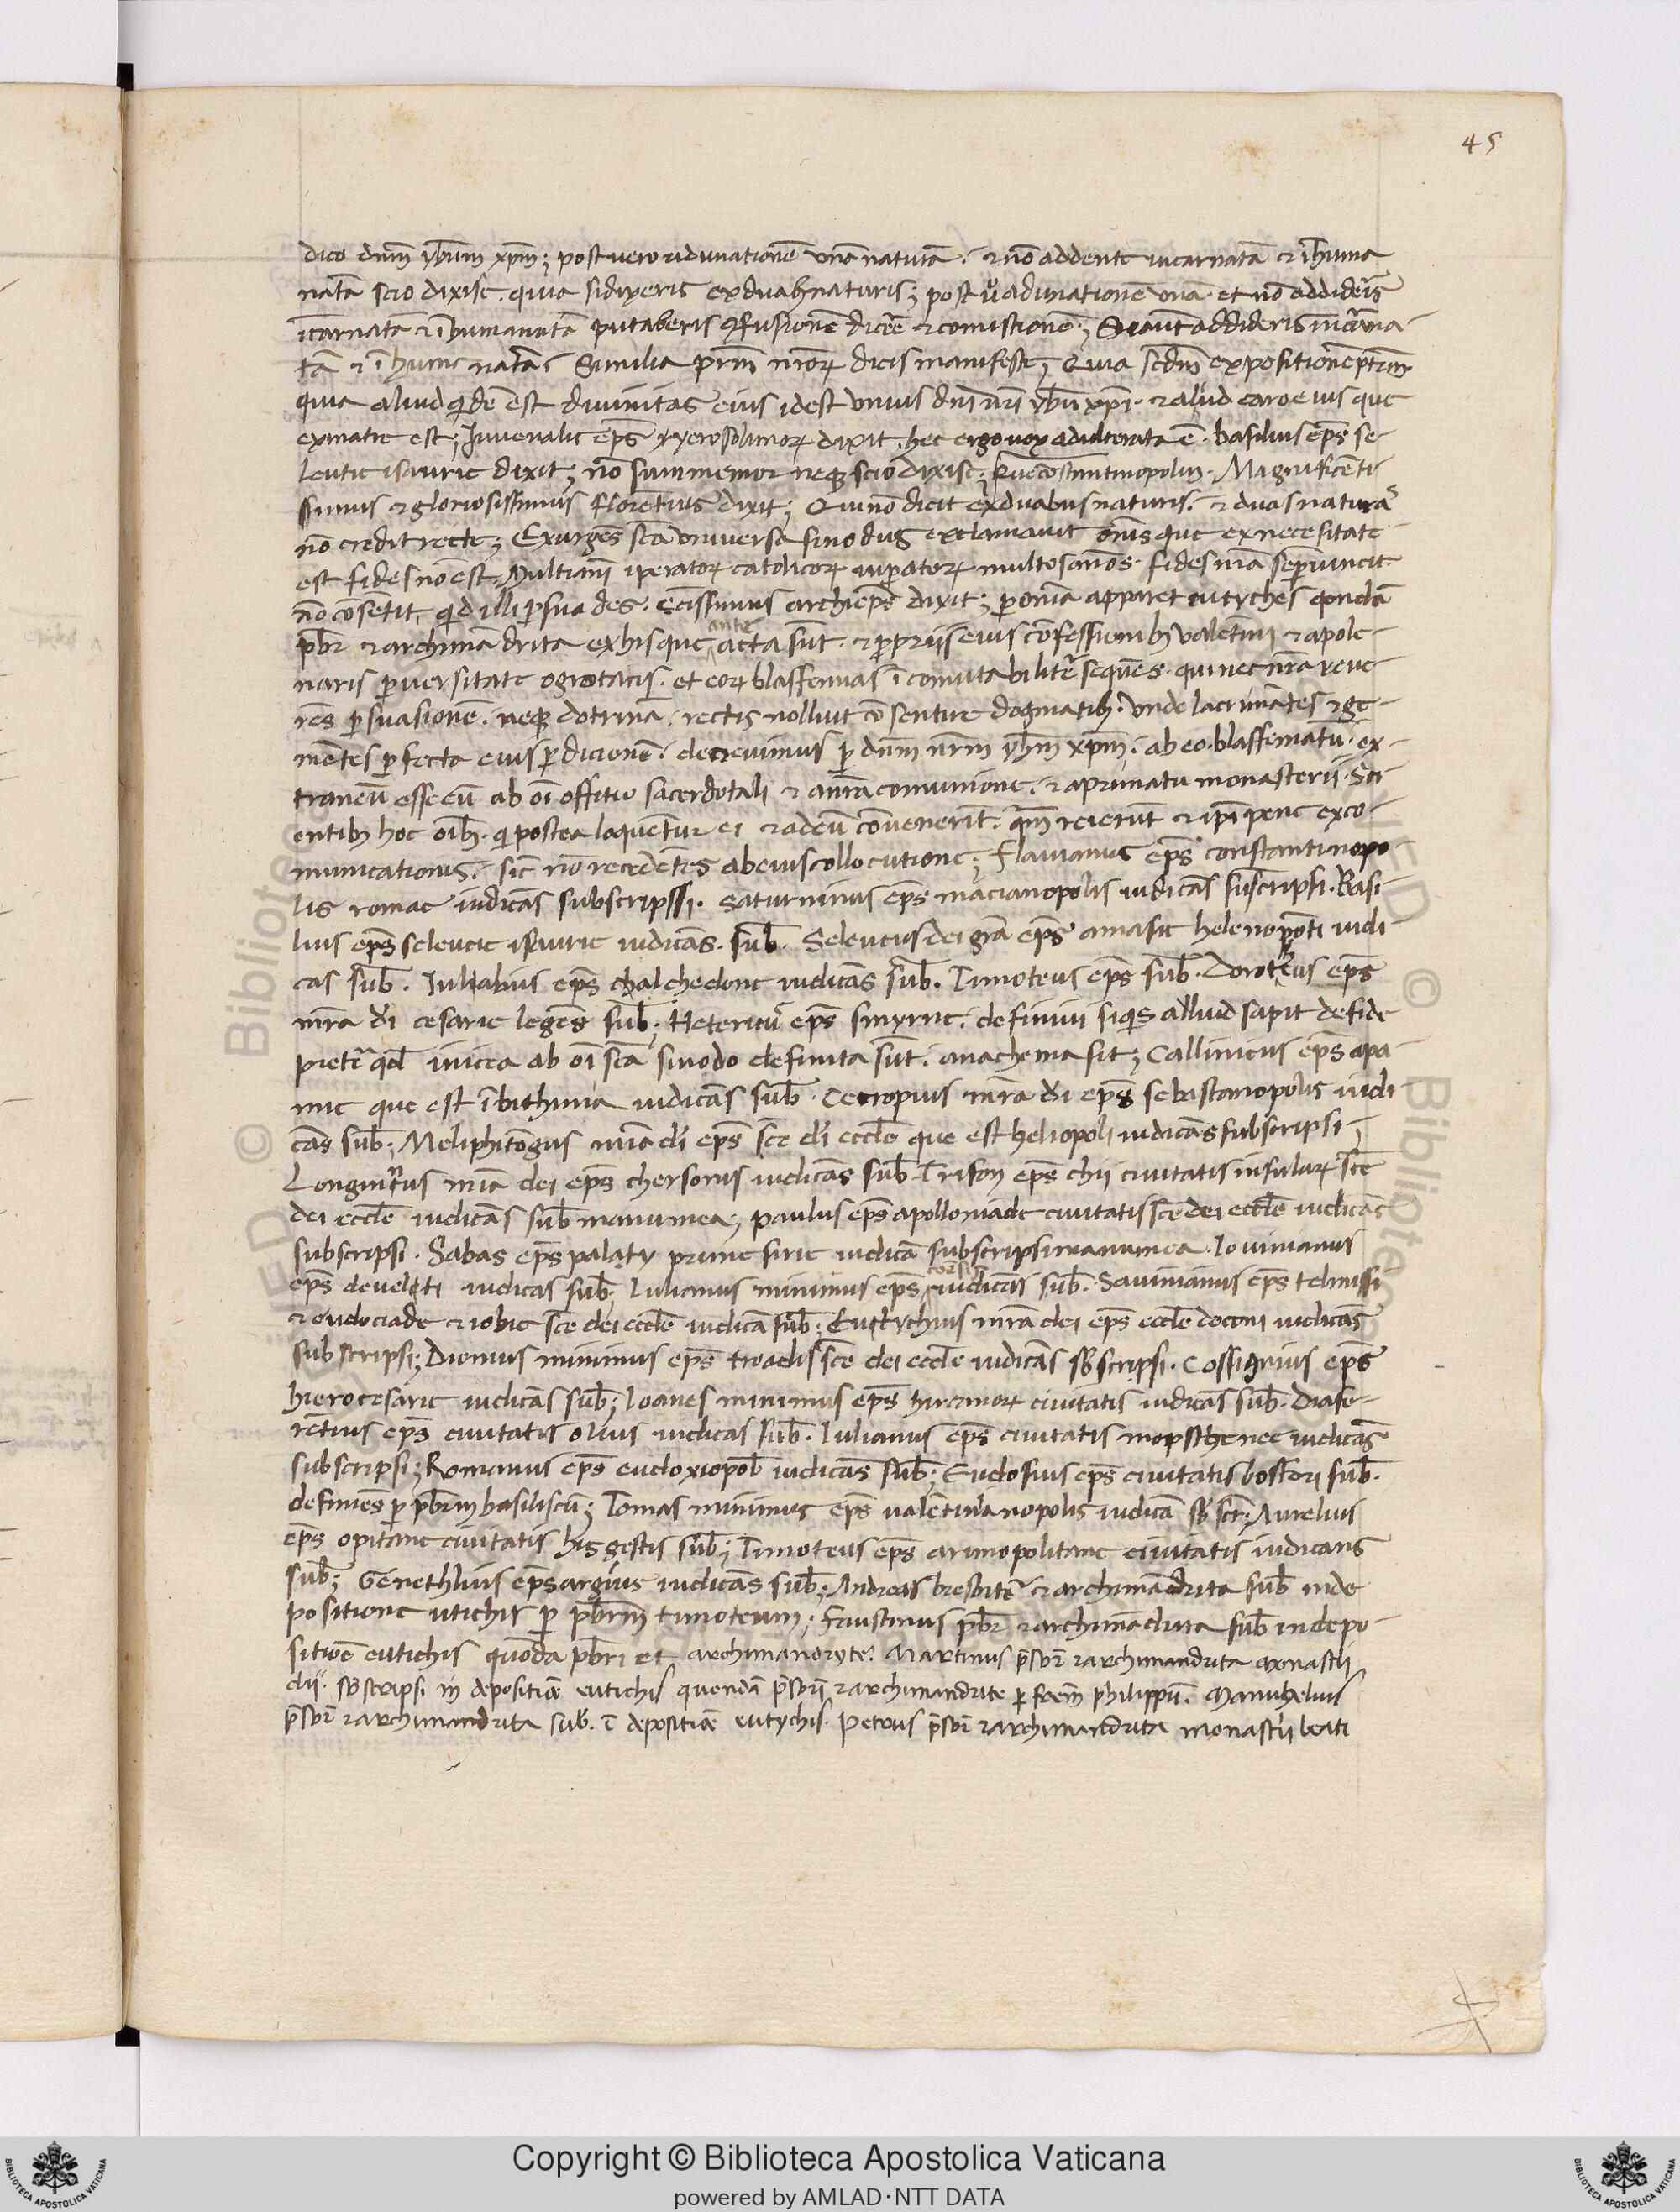 45
dico dnm yhum xpm; post vero adunationē vnā naturā. & nō addente incarnatā & ī huma
natā scio dixisc. quia si dixeris ex duab naturis; post ů adunationē vnā. et nō addideris
īcarnatā & ī humanatā putaberis ɔfusionē dicere & comistionē; Si aut addideris incarna-
tā & ī huma natā. Similia prm nror dicis manifeste; Quia scdm expositionē prm
quia aliud qidē est diuinitas eius idest vnius dni nri yhu xpi. & aliud caro eius que
ex matre est; Iuuenalis eps yyerosolimor dixit. hec ergo uox adulterata ē. basilius eps se-
leutie isaurie dixit; nō sum memor neq scio dixisc; Magnificēti
ssimus & gloriosissimus florētius dixit; Qui nō dicit ex duabus naturis. & duas naturas
nō credit recte; Exurgēs scā vniuersa sinodus exclamauit onis que ex necesitate
est fides nō est. Multi ani iperator catolicor iuperator multos annos. fides nrā semp uincit
nō cōsētit, qid illi psuades. scissimus archieps dixit; p onia apparet eutyches qondā
pbr & archimādrita ex his que ante acta sūt. & propriis eius cōfessionib valētini & apole-
naris peruersitate egrotacis. et eor blasfemias īcomutabiliter sequēs. qui nec nrā reue-
rēs psuasionē. neq dotrinā. rectis noluit cōsentire dogmatib. vnde lacrimātes & ge-
mētes pfecta eius pdicionē. decreuimus p dnm nrm yhm xpm. ab eo blasfematū. ex-
traneū esse eū ab oi offitio sacerdotali & a nra comunione. & a primatu monasterii. Sci
entib hoc oib. qi postea loquētur ei & ad eū cōuenerīt. qm reierunt & ipi pene exco-
municationis. sic nō recedētes ab eius collocutione; flauianus eps constantinopo-
lis romae iudicās subscripssi. saturninus eps macianopolis iudicās suscripsi. Basi-
lius eps seleucie isaurie iudicās. sub. Seleucus dei gra eps amasie helenoponti iudi
cas sub. Iulianus eps chalchedone iudicās sub. Timoteus eps sub. Doroteus eps
mra di cesarie legēs sub; Hetericus eps smyrne. definiui siqis alliud sapit de fide
preter qd inicea ab oi scā sinodo definita sūt. anachema sit; Callinicus eps apa-
mie que est ī bithinia iudicās sub. Cecropius mra di eps sebastanopolis iudi
cās sub; Meliphitōgus mia di eps sce di eccle que est heliopoli iudicās subscripsi;
Longinus mia dei eps chersonis iudicās sub. Trifon eps chii ciuitatis insular sce
dei eccle iudicās sub manu mea; paulus eps apolloniade ciuitatis sce dei eccle iudicās
subscripsi. Sabas eps palaty prime sirie iudicā subscripsi manu mea. Iouinianus
eps develeti iudicas sub; Iulianus minimus eps coesis iudicās sub. Sauinianus eps telmissi
& eudociade & iobie sce dei eccle iudicā sub; Eutychius mra dei eps eccle doconi iudicās
subscripsi; Dionius minimus eps troadis sce dei eccle iudicās sbscripsi. Cossinius eps
hierocesarie iudicās sub; Ioanes minimus eps hircanor ciuitatis iudicās sub. Diafe-
rētius eps ciuitatis olius iudicas sub. Iulianus eps ciuitatis mopsthenee iudicās
subscripsi; Romanus eps eudoxiopol iudicās sub; Eudosius eps ciuitatis bosfori sub.
definiēs p pbrm basiliscū; Tomas minimus eps ualētinianopolis iudicā sb scr; Aurelius
eps opitane ciuitatis his gestis sub; Timoteus eps arimopolitane ciuitatis iudicans
sub; Genethlius eps argius iudicās sub; Andreas bresbiter & archimādrita sub inde
positione utichis p pbrm timoteum; faustinus pbr & archimādrita sub in depo-
sitioē eutichis quōda pbri et archimanoryte. Martinus psbr & archimandrita monastii
dii. sbscripsi in depositiōe eutichis quondā psbri & archimandrite p frem philippū. Manuhelius
psbr & archimandrita sub. ī depositiōe eutychis. Petrus psbr & archimandrita monastii beati
Copyright © Biblioteca Apostolica Vaticana
powered by AMLAD·NTT DATA